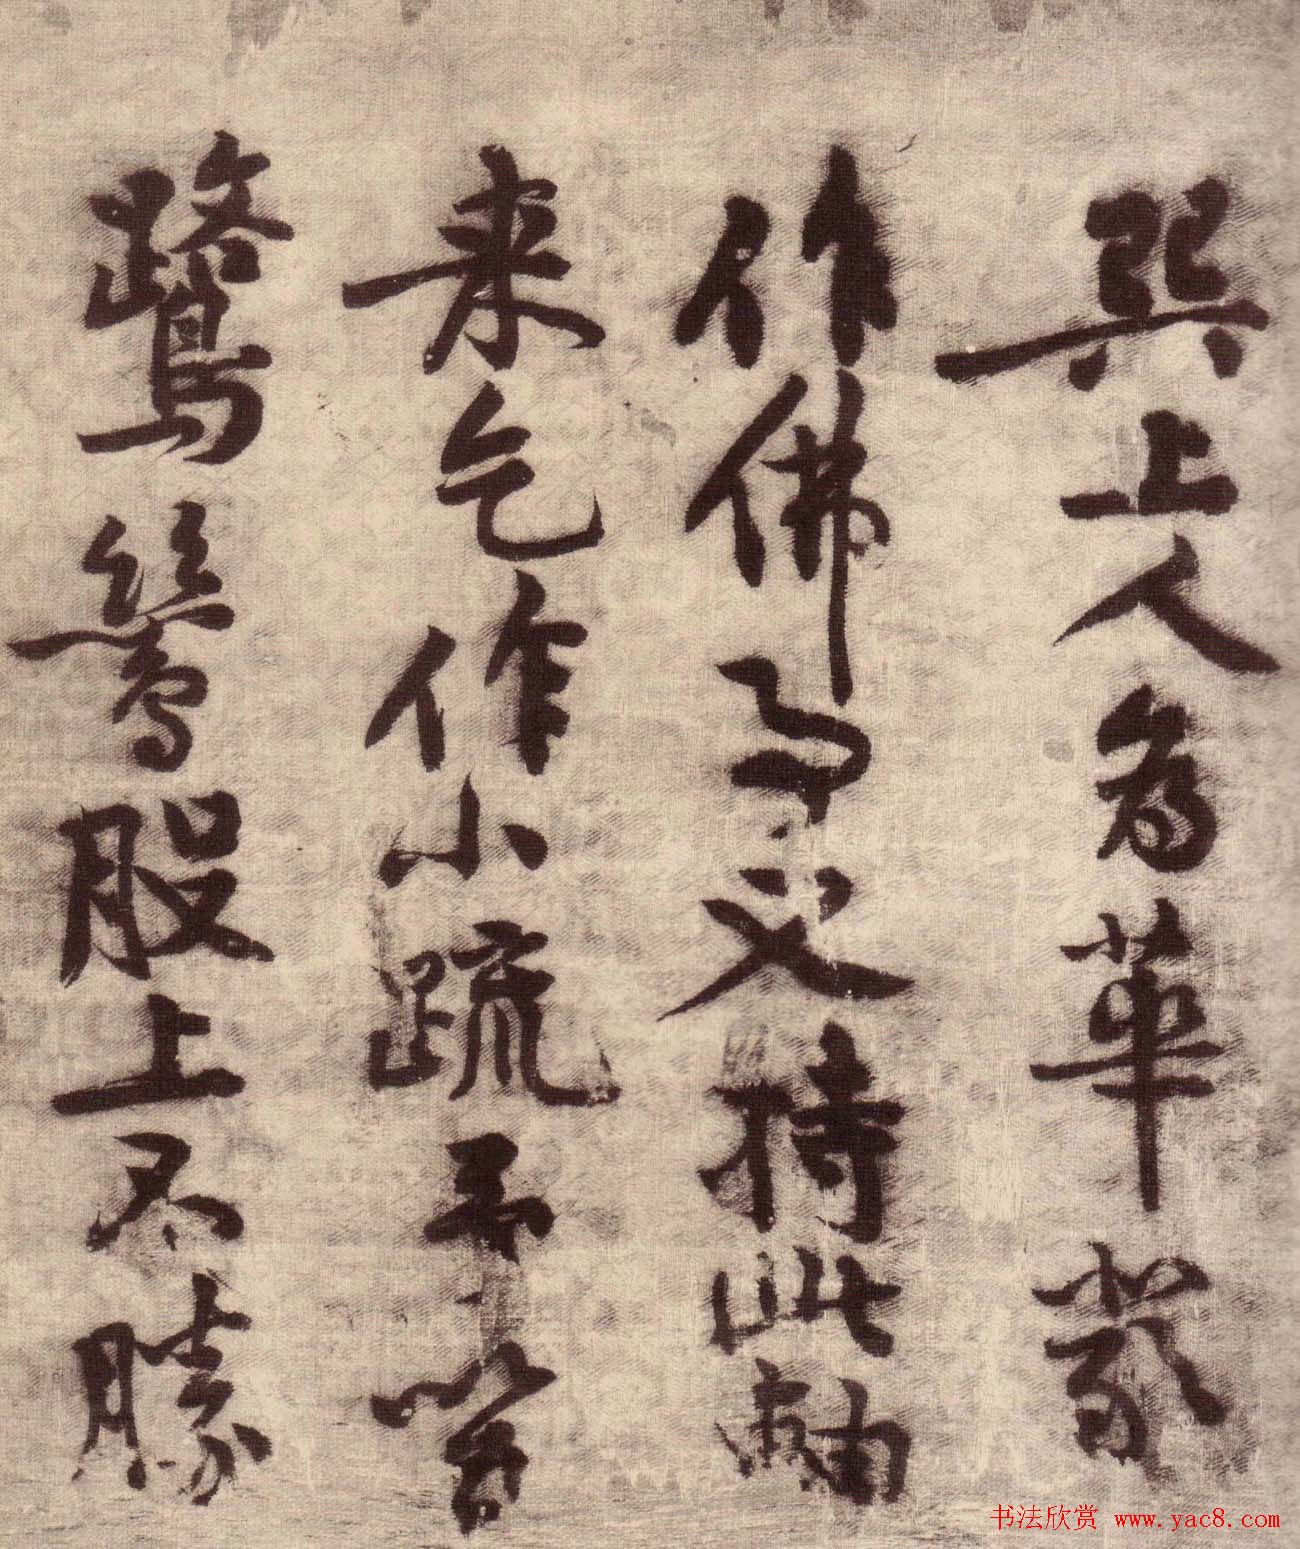 巽上人為華嚴
作佛事又持此軸
来乞作小疏不啻
鷺鷥股上不勝
书法欣赏 www.yac8.com